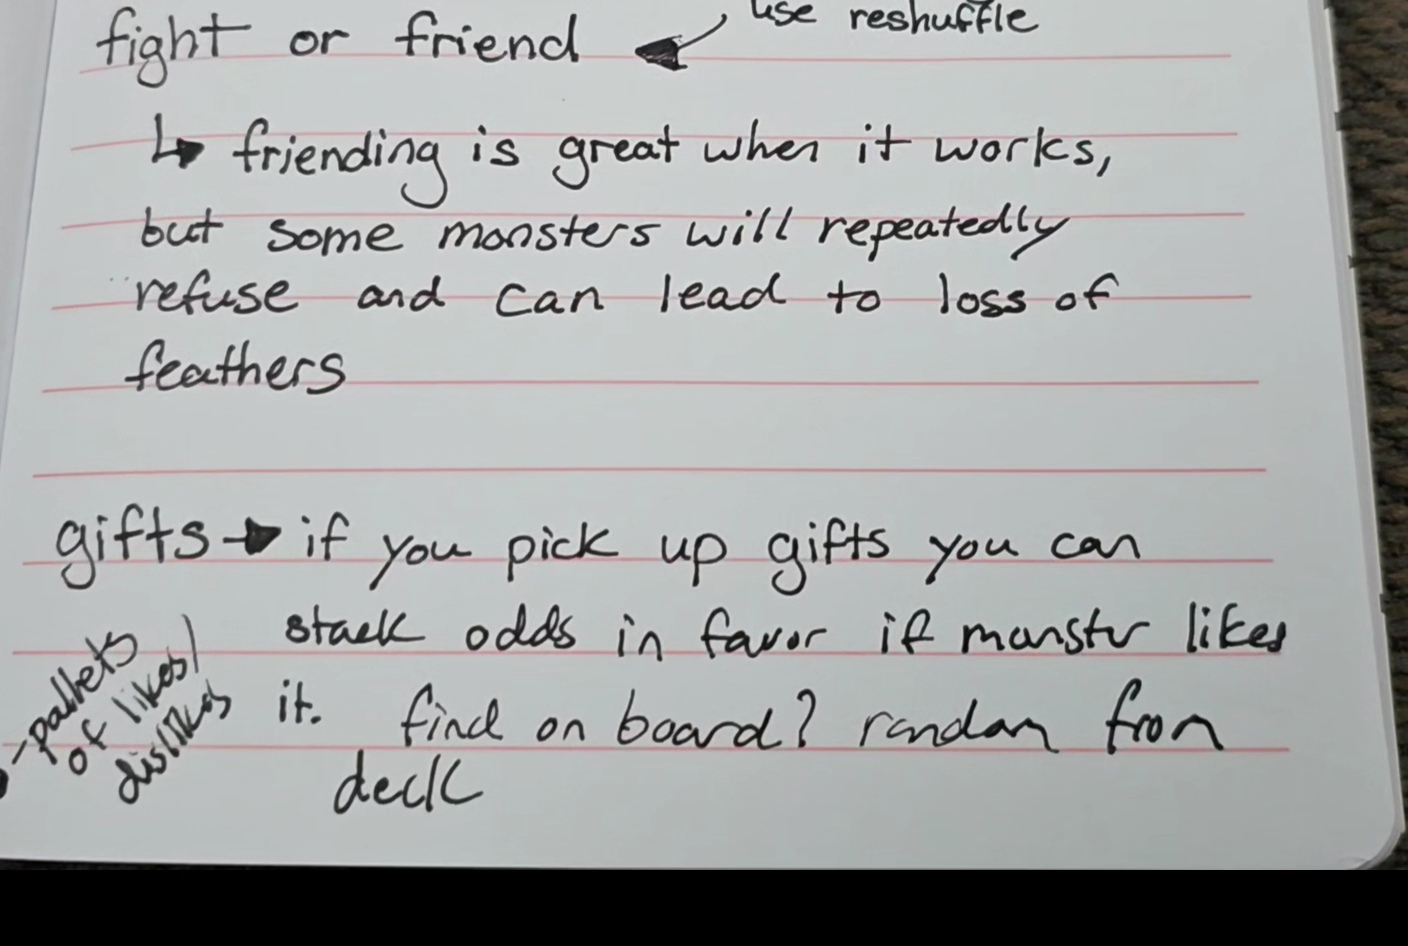 use reshuffle
fight or friend
↳ friending is great when it works,
but some monsters will repeatedly
refuse and can lead to loss of
feathers
gifts → if you pick up gifts you can
stack odds in favor if monstr likes
it. find on board? random from
deck
-pallets
of likes/
dislikes